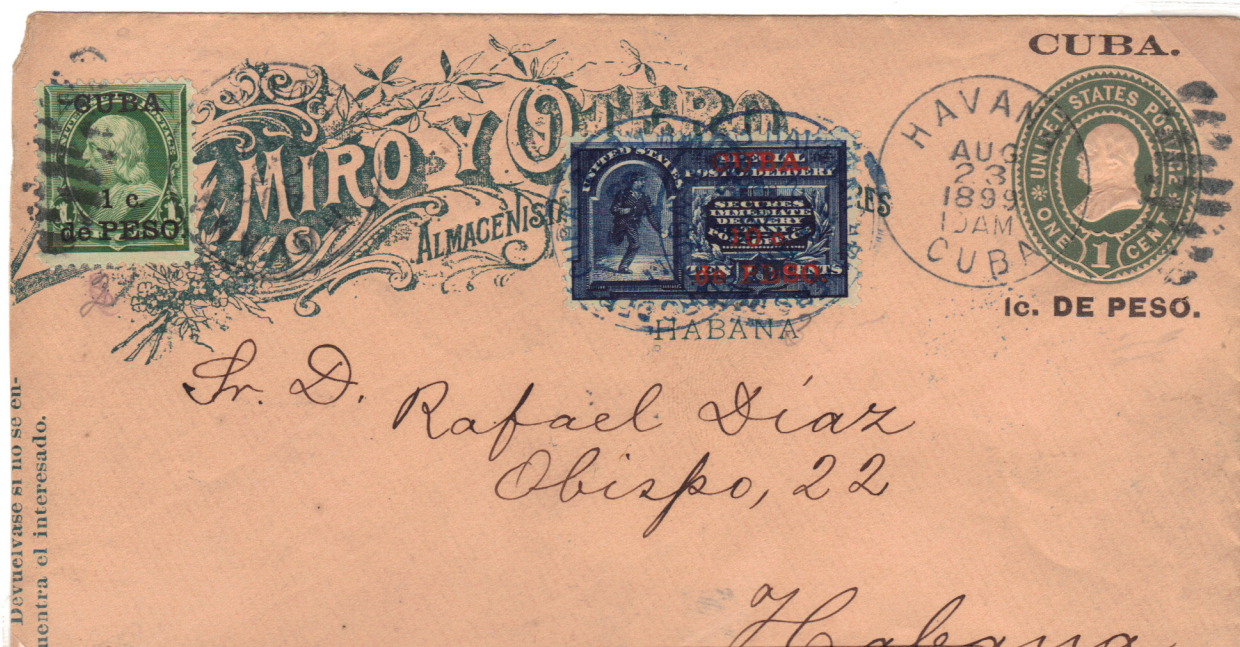 CUBA.
CUBA
1 c.
de PESO.
1
MIRO Y OTERO
ALMACENISTA
HABANA
UNITED STATES
SPECIAL
POSTAL DELIVERY
SECURES
IMMEDIATE
DELIVERY
CUBA.
10 c.
de PESO.
HAVANA
AUG
23
1899
10AM
CUBA
UNITED STATES POSTAGE
ONE 1 CENT
1c. DE PESO.
Sr. D. Rafael Díaz
Obispo, 22
Habana
Devuélvase si no se en-
uentra el interesado.